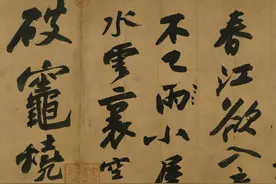 春江欲入
不已雨小屋
水雲裏空
破竈燒